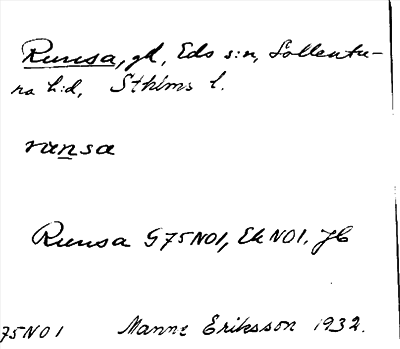 Runsa, gd, Eds s:n, Sollentu-
na h:d, Sthlms l.
runsa
Runsa G75NO1, Ek NO1. JC
75NO1 Manne Eriksson 1932.